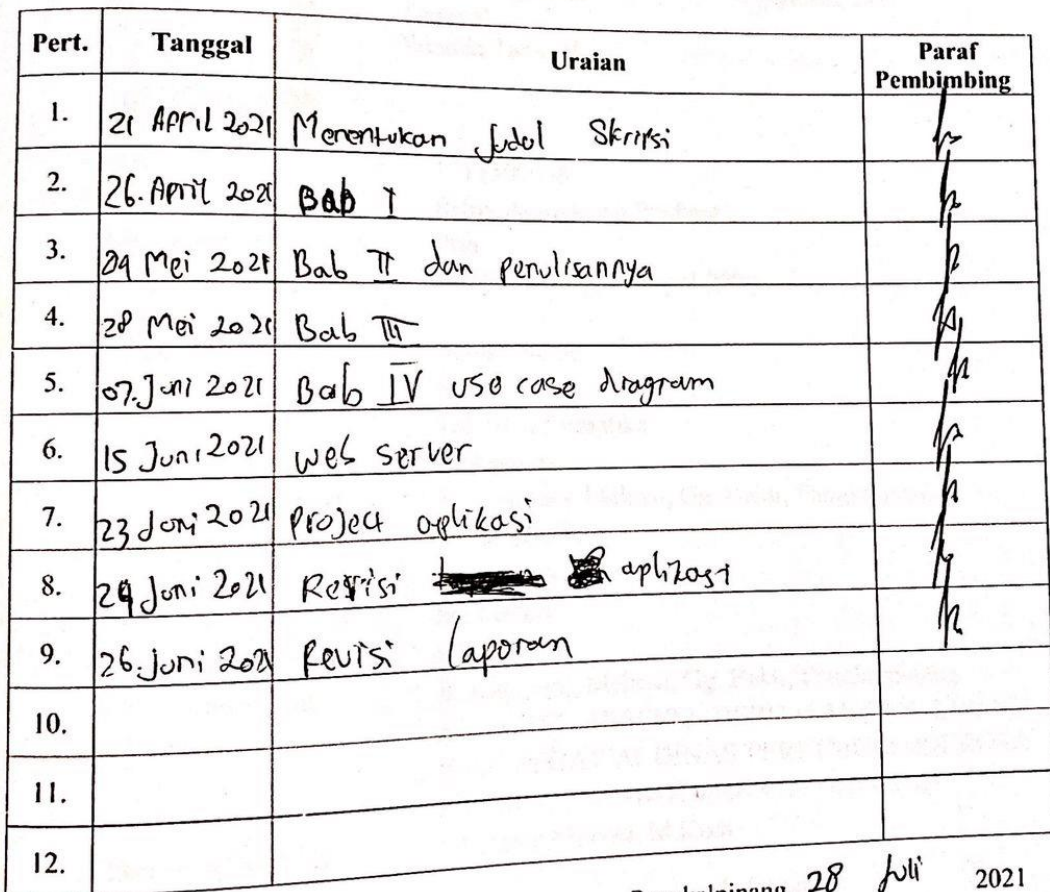 Pert. Tanggal Uraian Paraf Pembimbing
1. 21 April 2021 Menentukan Judul Skripsi
2. 26. April 2021 Bab I
3. 04 Mei 2021 Bab II dan penulisannya
4. 28 Mei 2021 Bab III
5. 07. Juni 2021 Bab IV use case diagram
6. 15 Juni 2021 web server
7. 23 Juni 2021 Project aplikasi
8. 24 Juni 2021 Revisi aplikasi
9. 26. Juni 2021 Revisi laporan
10.
11.
12.
28 Juli 2021